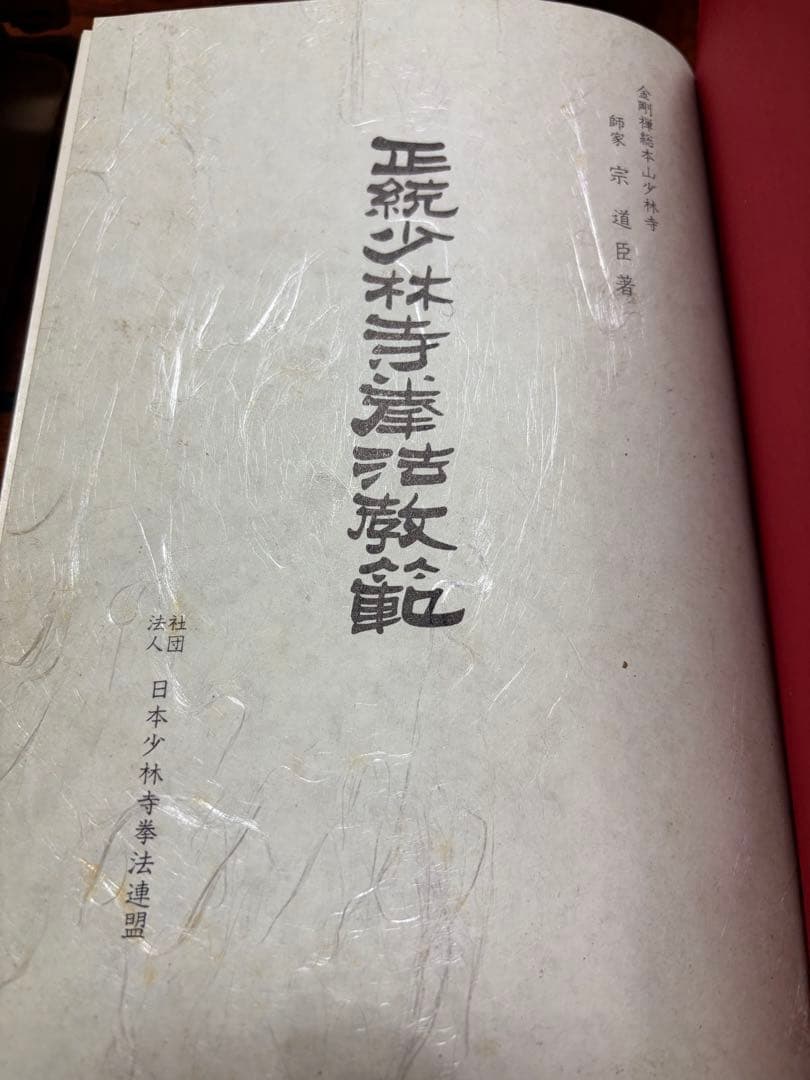 金剛禅総本山少林寺
師家 宗道臣著
正統少林寺拳法教範
社団
法人
日本少林寺拳法連盟